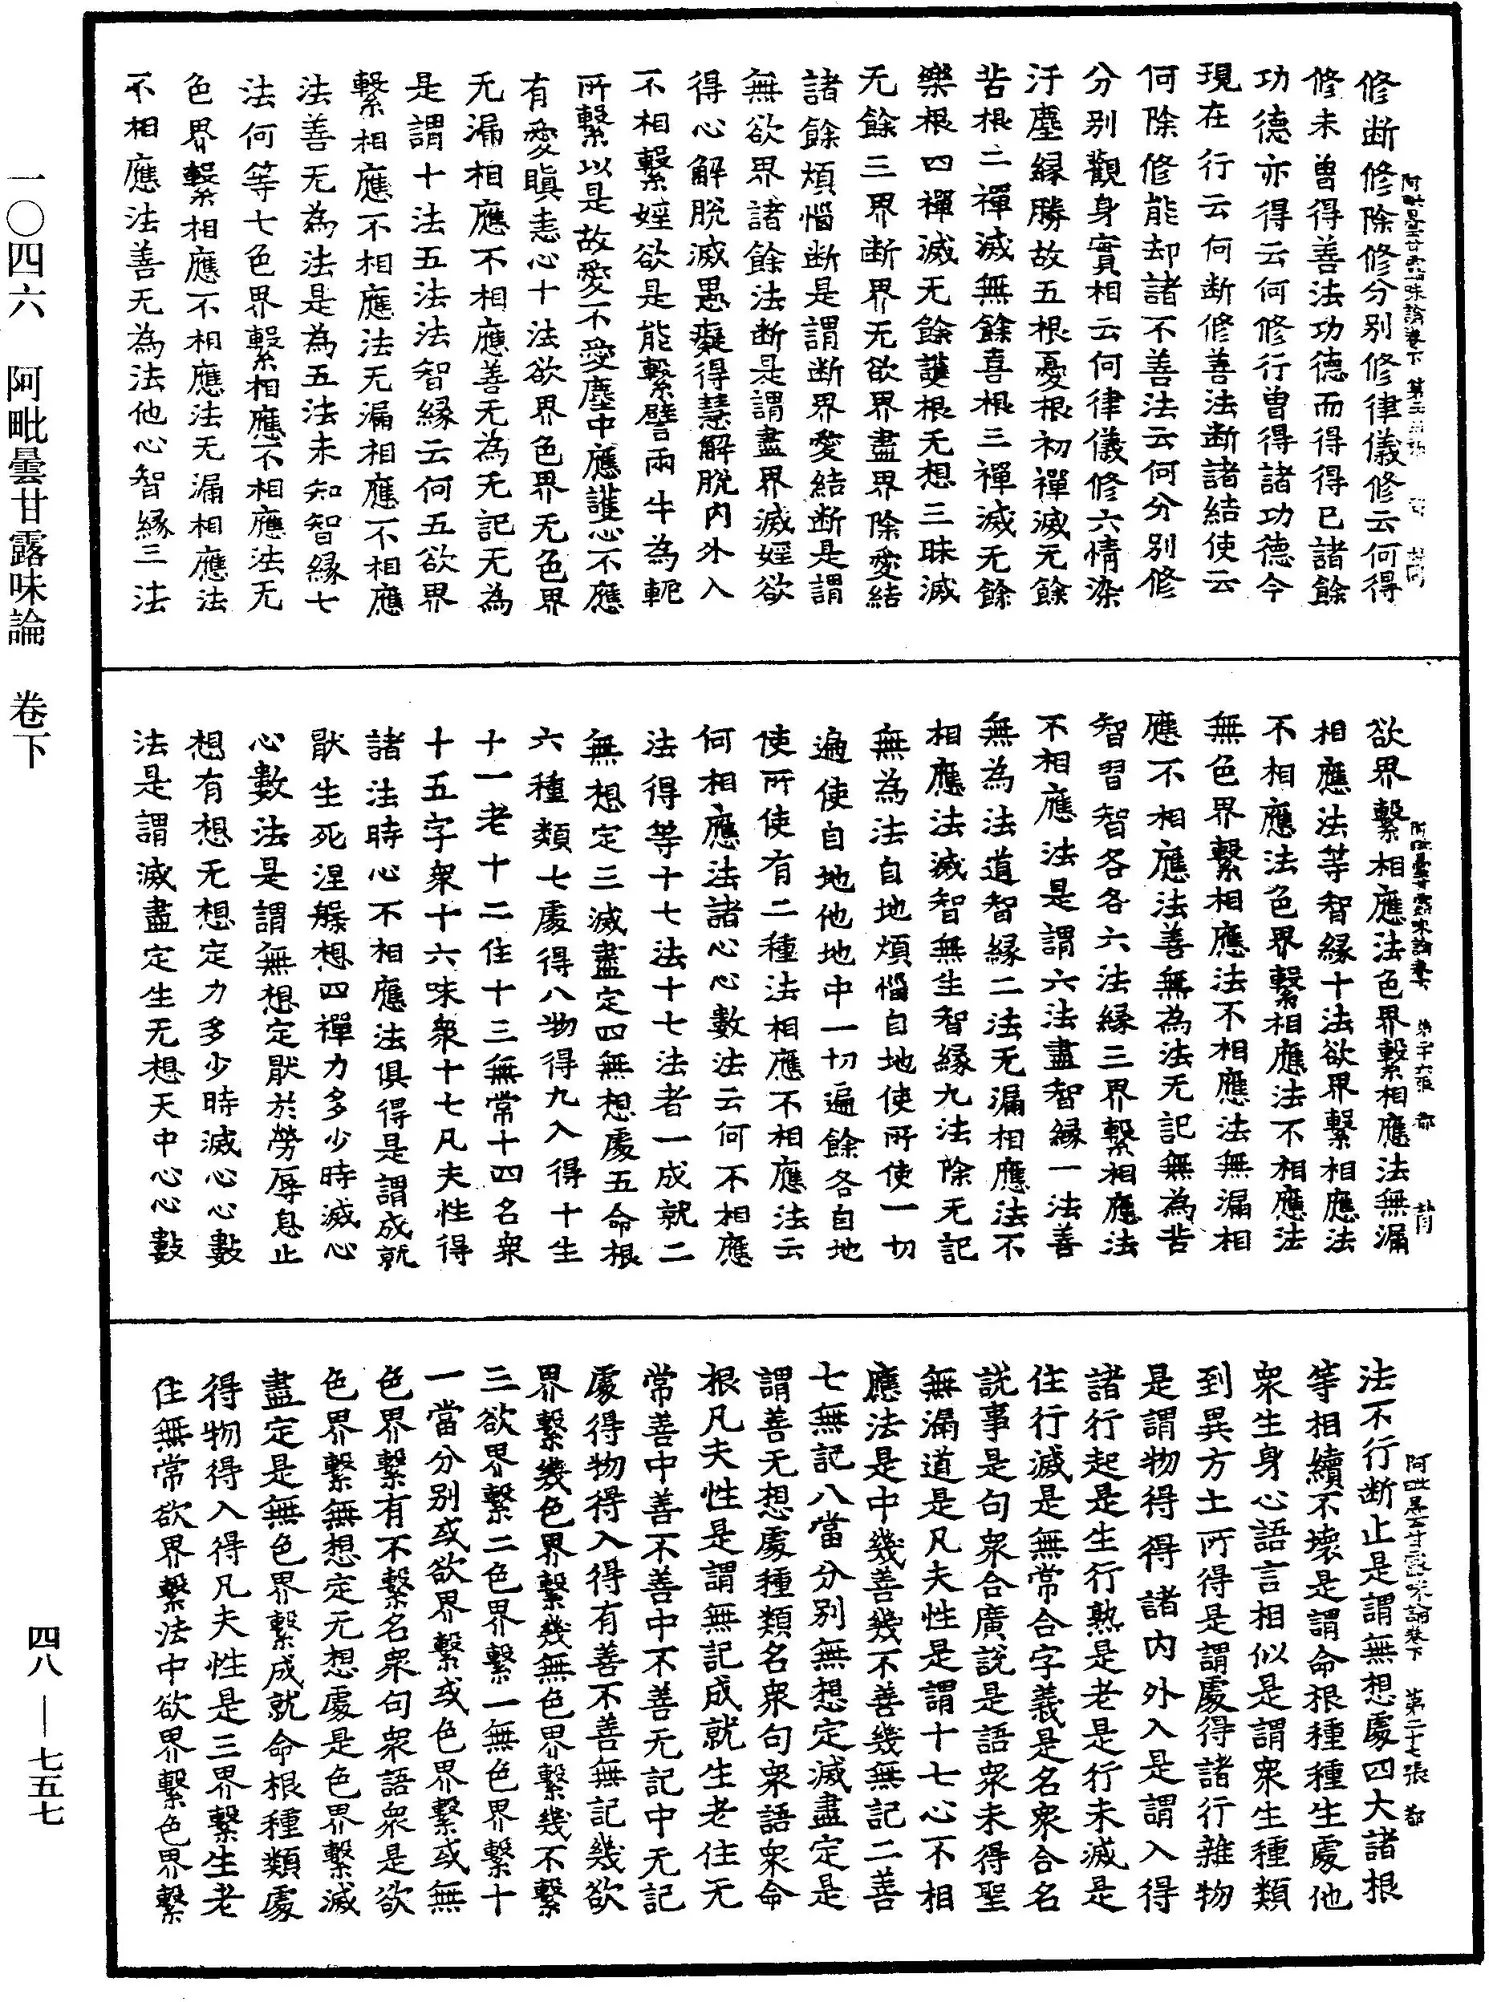 修断修除修分別修律儀修云何得
修未曾得善法功德而得得已諸餘
功德亦得云何修行曾得諸功德今
現在行云何断修善法断諸結使云
何除修能却諸不善法云何分別修
分別觀身實相云何律儀修六情染
汙塵縁勝故五根憂根初禪滅无餘
苦根二禪滅無餘喜根三禪滅无餘
樂根四禪滅无餘護根无想三昧滅
无餘三界断界无欲界盡界除愛結
諸餘煩惱断是謂断界愛結断是謂
無欲界諸餘法断是謂盡界滅婬欲
得心解脫滅愚癡得慧解脫内外入
不相繫婬欲是能繫譬兩牛為軛
所繫以是故愛不愛塵中應護心不應
有愛瞋恚心十法欲界色界无色界
无漏相應不相應善无為无記无為
是謂十法五法法智縁云何五欲界
繫相應不相應法无漏相應不相應
法善无為法是為五法未知智縁七
法何等七色界繫相應不相應法无
色界繫相應不相應法无漏相應法
不相應法善无為法他心智縁三法
欲界繫相應法色界繫相應法無漏
相應法等智縁十法欲界繫相應法
不相應法色界繫相應法不相應法
無色界繫相應法不相應法無漏相
應不相應法善無為法无記無為苦
智習智各各六法縁三界繫相應法
不相應法是謂六法盡智縁一法善
無為法道智縁二法无漏相應法不
相應法滅智無生智縁九法除无記
無為法自地煩惱自地使所使一切
遍使自地他地中一切遍餘各自地
使所使有二種法相應不相應法云
何相應法諸心心數法云何不相應
法得等十七法十七法者一成就二
無想定三滅盡定四無想處五命根
六種類七處得八物得九入得十生
十一老十二住十三無常十四名衆
十五字衆十六味衆十七凡夫性得
諸法時心不相應法俱得是謂成就
猒生死涅槃想四禪力多少時滅心
心數法是謂無想定猒於勞辱息止
想有想无想定力多少時滅心心數
法是謂滅盡定生无想天中心心數
法不行断止是謂無想處四大諸根
等相續不壞是謂命根種種生處他
衆生身心語言相似是謂衆生種類
到異方土所得是謂處得諸行雜物
是謂物得得諸内外入是謂入得
諸行起是生行熟是老是行未滅是
住行滅是無常合字義是名衆合名
說事是句衆合廣說是語衆未得聖
無漏道是凡夫性是謂十七心不相
應法是中幾善幾不善幾無記二善
七無記八當分別無想定滅盡定是
謂善无想處種類名衆句衆語衆命
根凡夫性是謂無記成就生老住无
常善中善不善中不善无記中无記
處得物得入得有善不善無記幾欲
界繫幾色界繫幾無色界繫幾不繫
三欲界繫二色界繫一無色界繫十
一當分別或欲界繫或色界繫或無
色界繫有不繫名衆句衆語衆是欲
色界繫無想定无想處是色界繫滅
盡定是無色界繫成就命根種類處
得物得入得凡夫性是三界繫生老
住無常欲界繫法中欲界繫色界繫
一〇四六 阿毗曇甘露味論 卷下
四八—七五七